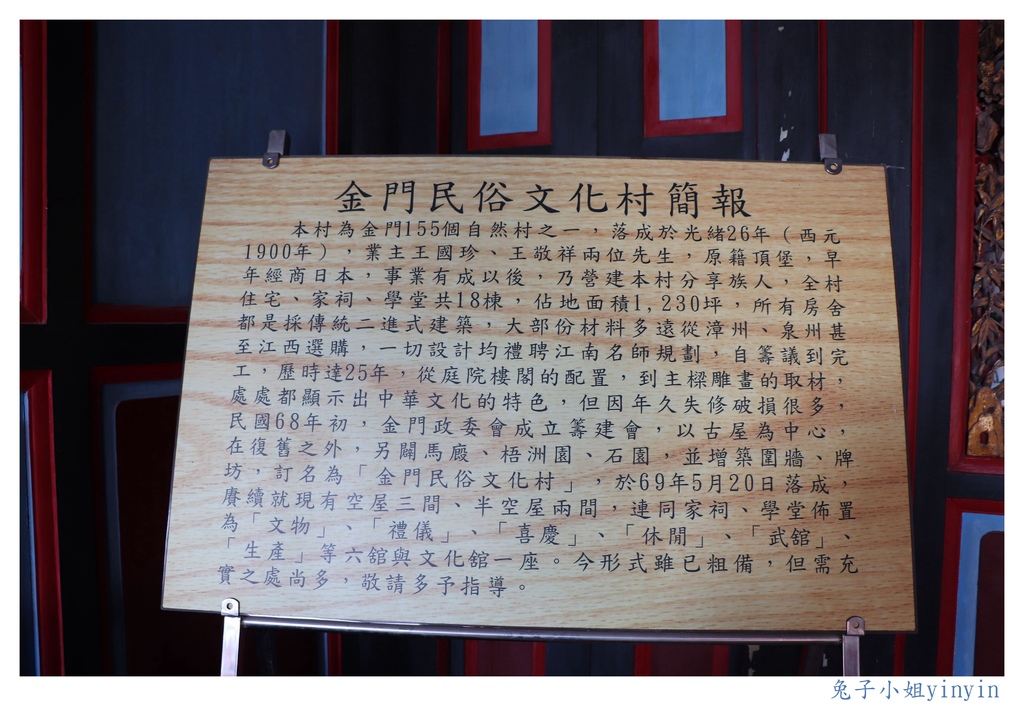 金門民俗文化村簡報
本村為金門155個自然村之一，落成於光緒26年（西元
1900年），業主王國珍、王敬祥兩位先生，原籍頂堡，早
年經商日本，事業有成以後，乃營建本村分享族人，全村
住宅、家祠、學堂共18棟，佔地面積1,230坪，所有房舍
都是採傳統二進式建築，大部份材料多遠從漳州、泉州甚
至江西選購，一切設計均禮聘江南名師規劃，自籌議到完
工，歷時達25年，從庭院樓閣的配置，到主樑雕畫的取材，
處處都顯示出中華文化的特色，但因年久失修破損很多，
民國68年初，金門政委會成立籌建會，以古屋為中心，
在復舊之外，另闢馬廄、梧洲園、石園，並增築圍牆、牌
坊，訂名為「金門民俗文化村」，於69年5月20日落成，
賡續就現有空屋三間、半空屋兩間，連同家祠、學堂佈置
為「文物」、「禮儀」、「喜慶」、「休閒」、「武舘」、
「生產」等六舘與文化舘一座。今形式雖已粗備，但需充
實之處尚多，敬請多予指導。
兔子小姐yinyin